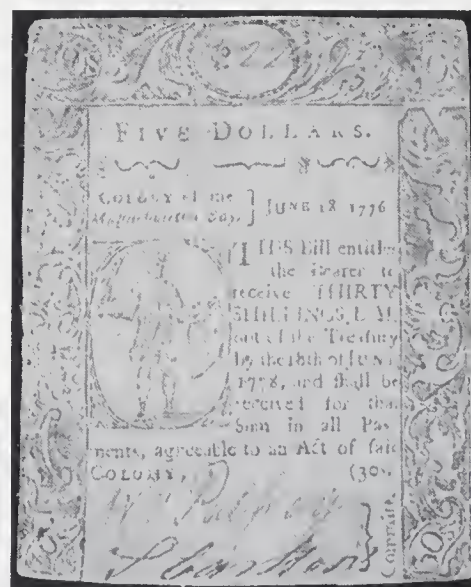 FIVE DOLLARS.
COLONY of the
Massachusetts Bay.
} JUNE 18 1776
THIS Bill entitles
the Bearer to
receive THIRTY
SHILLINGS, L M.
out of the Treasury
by the 18th of JUNE
1778, and shall be
received for that
Sum in all Pay
ments, agreeable to an Act of said
COLONY, (30s.
Committe